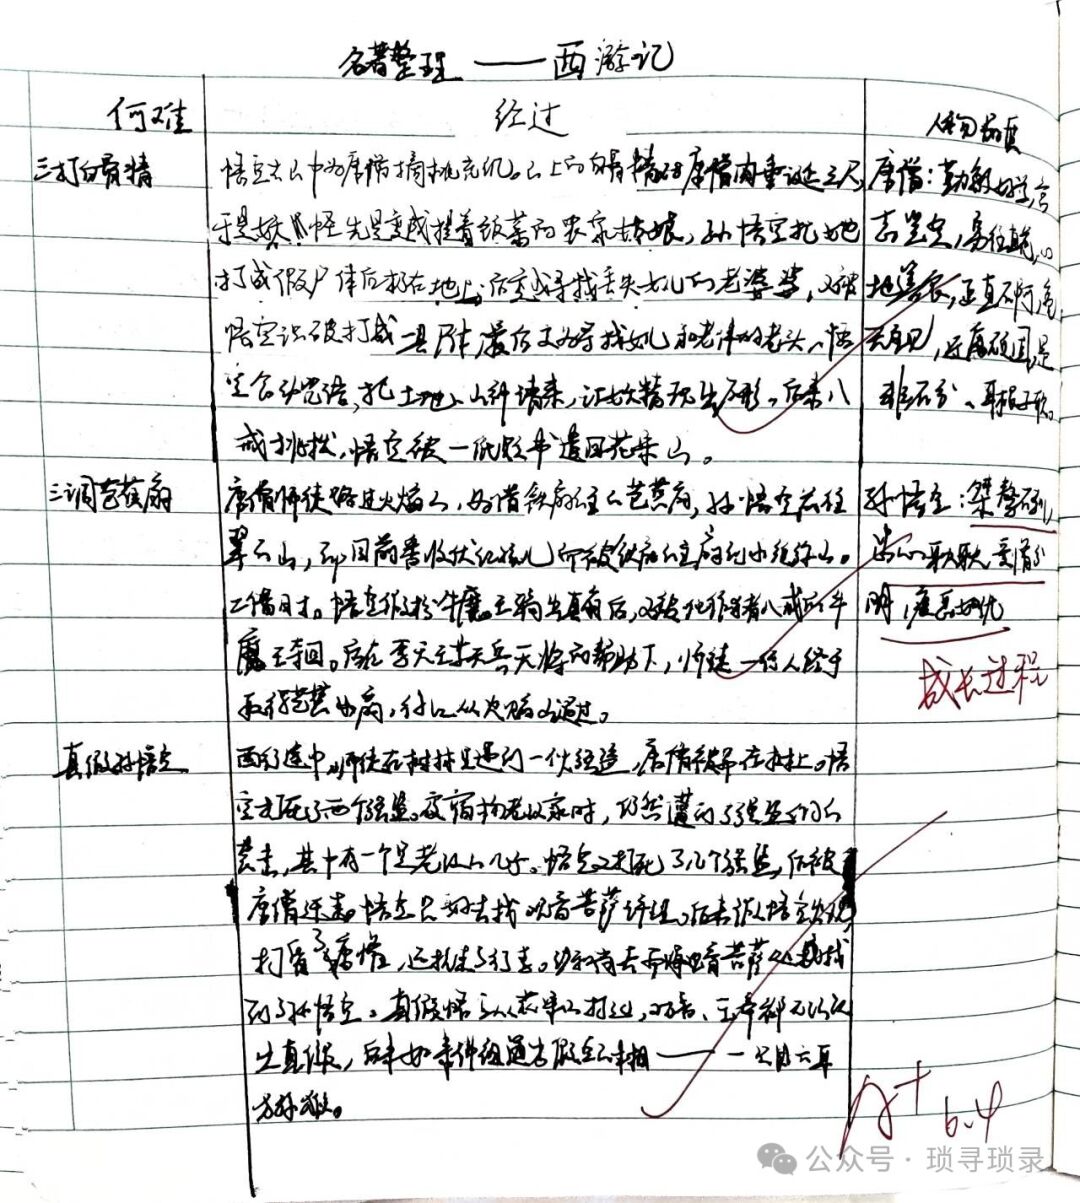 名著整理——西游记
何难 经过 人物品质
三打白骨精
悟空去山中为唐僧摘桃充饥。山上的白骨精对唐僧肉垂涎三尺,
于是妖怪先是变成提着饭菜的农家姑娘,孙悟空把她
打成假尸体后扔在地上,后变成寻找丢失女儿的老婆婆,又被
悟空识破打成一具尸体,最后又为寻找女儿和老伴的老头,悟
空念动咒语,把土地、山神请来,让妖精现出原形。后来八
戒挑拨,悟空被一纸贬书遣回花果山。
唐僧:勤敏好学,
志坚定,
地善良,正直不阿,
还顽固,是
非不分、耳根子软。
三调芭蕉扇
唐僧师徒路过火焰山,为借铁扇公主芭蕉扇,孙悟空前往
翠云山,却因前番收伏红孩儿而被铁扇公主扇到小须弥山。
二借时。悟空假扮牛魔王骗出真扇后,又被化作猪八戒的牛
魔王拿回。后在李天王等天兵天将的帮助下,师徒一行人终于
取得芭蕉扇,从火焰山通过。
孙悟空:桀骜不驯,
爱憎分
明,疾恶如仇
成长过程
真假孙悟空
西行途中,师徒在树林里遇到一伙强盗,唐僧被吊在树上。悟
空打死了两个强盗。夜宿杨老汉家时,仍然遭到了强盗们的
袭击,其中有一个是老汉的儿子。悟空又打死了几个强盗,后被
唐僧逐走。悟空只好去找观音菩萨评理。后来假悟空出现,
打昏了唐僧,还抢走了行李。沙和尚去南海观音菩萨处找
到了孙悟空。真假悟空从花果山打过,观音、玉帝都无法认
出真假,后来如来佛祖道出假悟空本相——一只六耳
猕猴。
A+
6.4
公众号·琐寻琐录